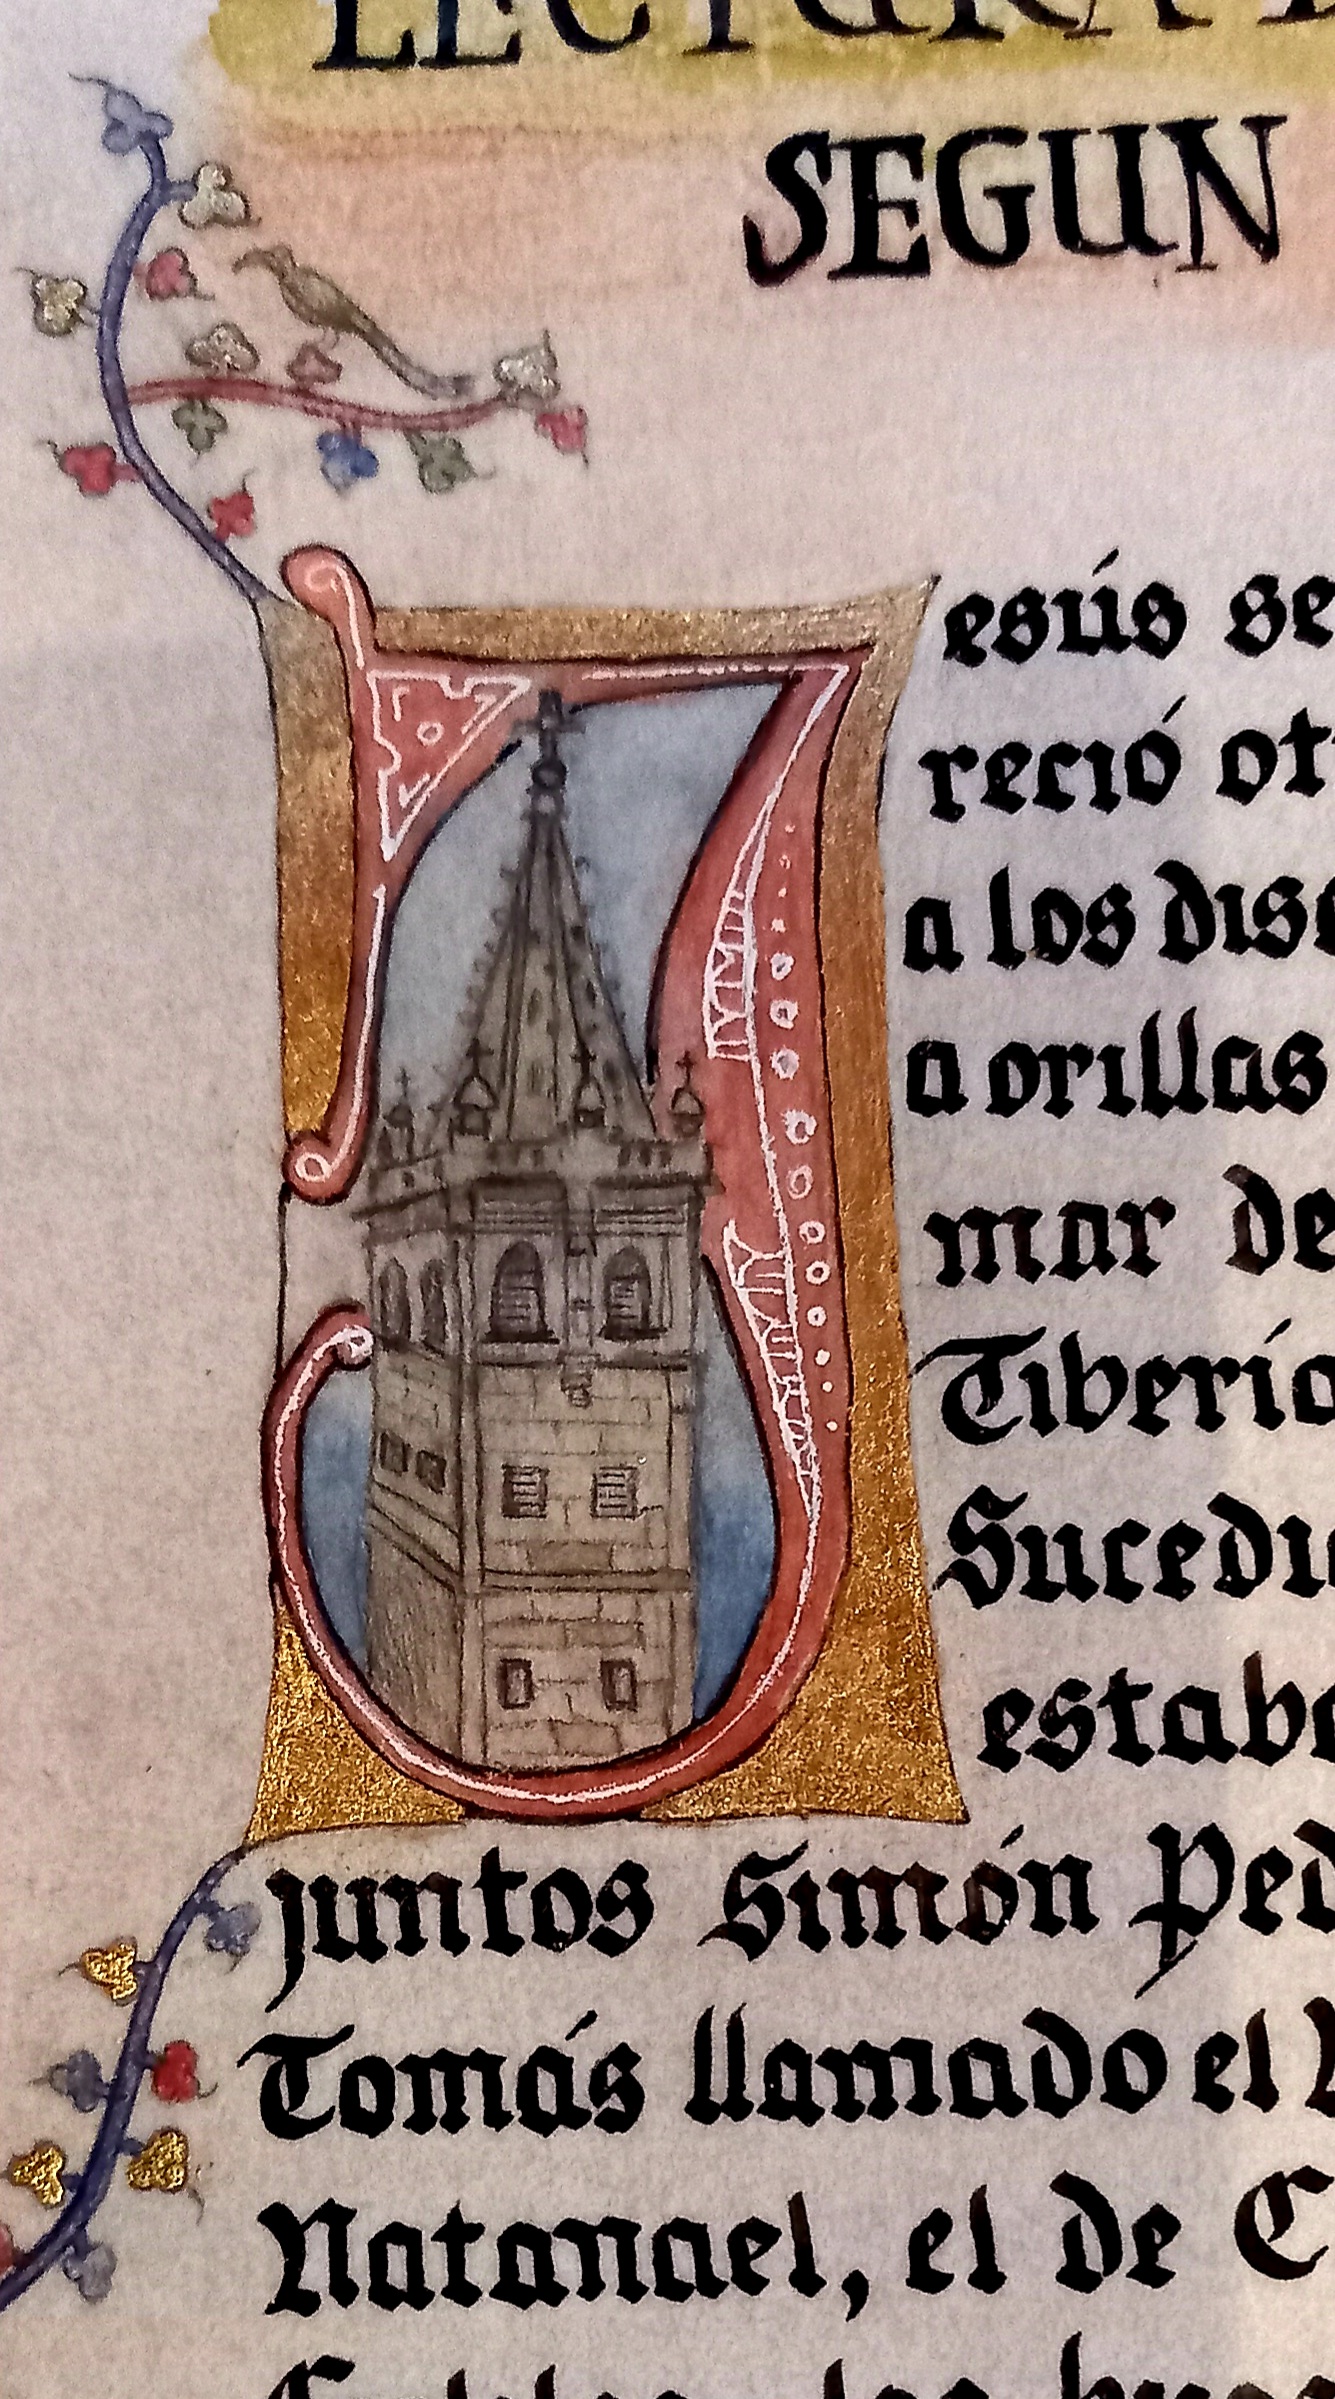 LECTURA
SEGUN
Jesús se
reció ot
a los disc
a orillas
mar de
Tiberia
Sucedi
estaba
juntos Simón Ped
Tomás llamado el
Natanael, el de C